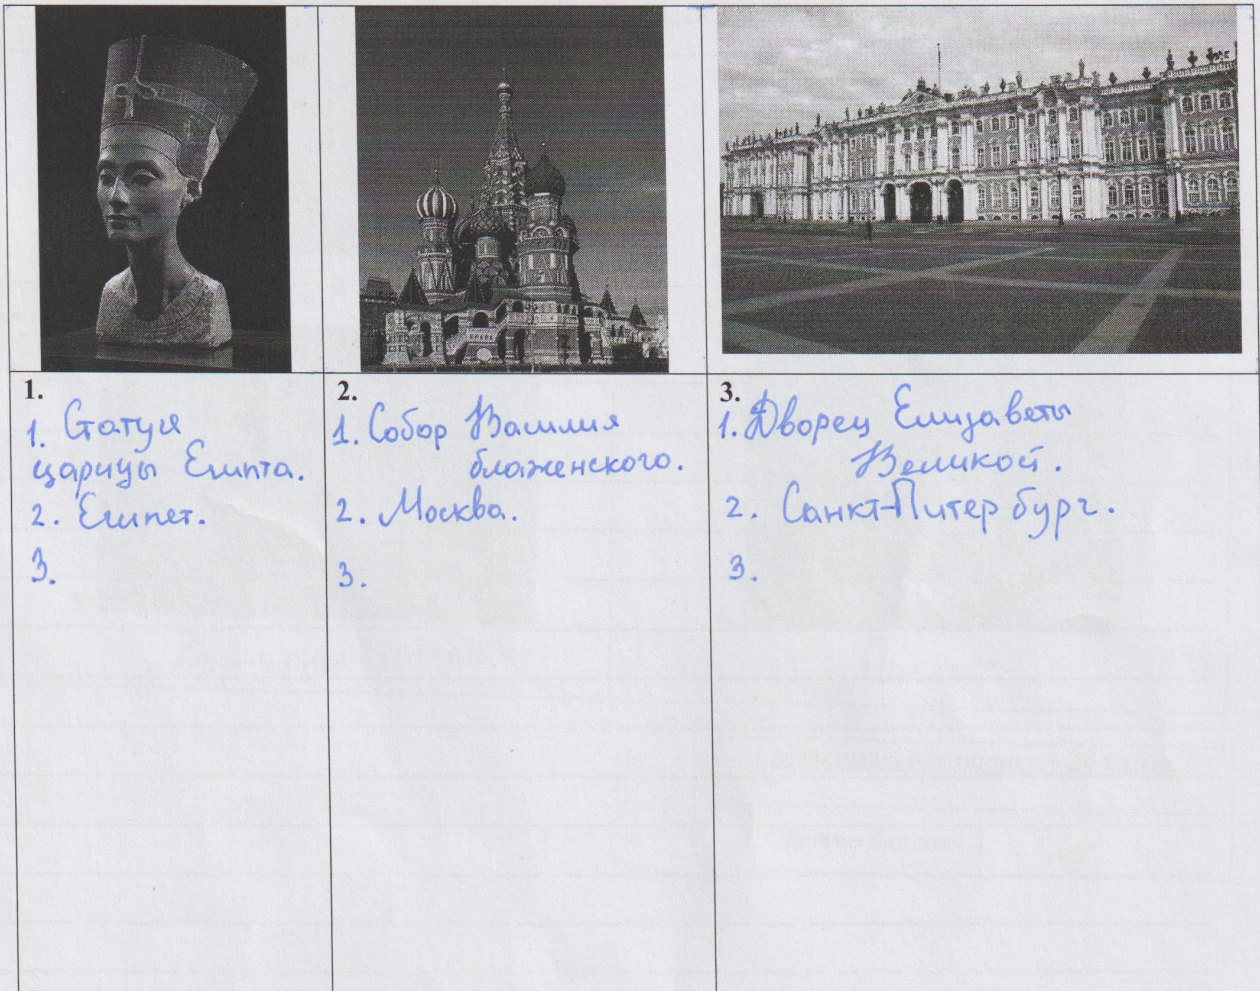 1.
1. Статуя
царицы Египта.
2. Египет.
3.
2.
1. Собор Василия
блаженского.
2. Москва.
3.
3.
1. Дворец Елизаветы
Великой.
2. Санкт-Питер бург.
3.